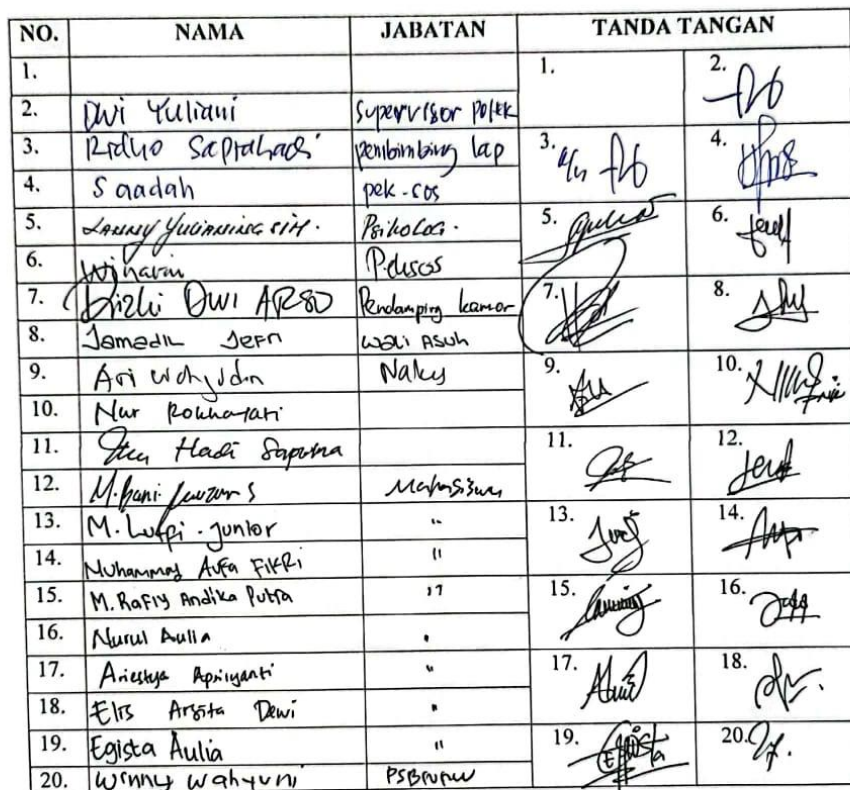 NO. NAMA JABATAN TANDA TANGAN
1. 1. 2.
2. Dwi Yuliani Supervisor Poltek
3. Ridho Saprahadi pembimbing lap 3. a/n 4.
4. Saadah pek-sos
5. LANNY YULIANINGSIH. Psikolog. 5. 6.
6. Winarni Peksos
7. Rizki DWI ARSO Pendamping kamar 7. 8.
8. Jamadin Jefri Wali Asuh
9. Ari Wahyudin Nakes 9. 10.
10. Nur Rokhayati
11. Hadi Saputra 11. 12.
12. M. Mahasiswa
13. M. Lutfi . Junior " 13. 14.
14. Muhammad Aufa FIKRi "
15. M. Rafiy Andika Putra " 15. 16.
16. Nurul Aulia "
17. Ariestya Apriyanti " 17. 18.
18. Elis Arsita Dewi "
19. Egista Aulia " 19. Egista 20.
20. Winny Wahyuni